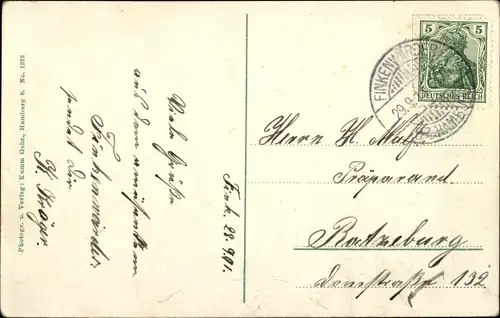 Photogr. u. Verlag: Kumm Gebr., Hamburg 8. No. 1372
Fink. 28.9.01.
Viele Grüße
aus dem
Finkenwärder
sendet Dir
H. Kröger.
5 5
DEUTSCHES REICH
FINKENWÄRDER
29.9.
Herrn H. May
Präparand
Ratzeburg
Domstraße 132